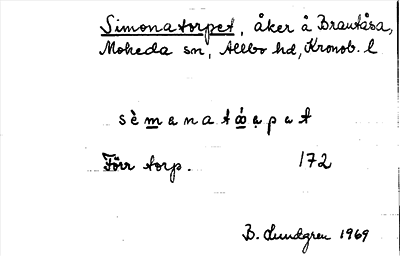 Simonatorpet, åker å Brautåsa,
Moheda sn, Allbo hd, Kronob. l
sèmanatǿa̤pat
Förr torp. 172
B. Lundgren 1969